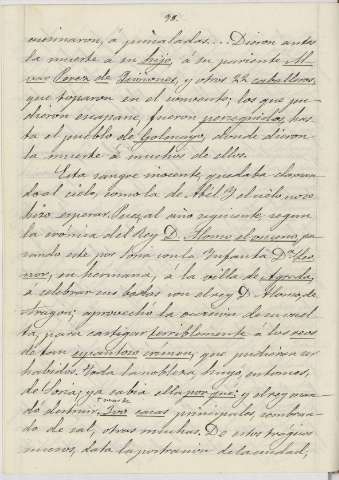 98.
asesinaron, á puñaladas... Dieron antes
la muerte á su hijo, á su pariente
Perez de y otros 22 caballeros,
que toparon en el momento; los que pu-
dieron escaparse, fueron perseguidos, has-
ta el pueblo de Golmayo, donde dieron
la muerte á muchos de ellos.
Esta sangre inocente, quedaba claman-
do al cielo, como la de Abel: y el cielo no se
hizo esperar. Pues, al año siguiente, segun
la crónica del Rey D. Alonso el onceno, pa-
sando este por Soria con la Infanta Dª Leo-
nor, su hermana, á la villa de Agreda,
á celebrar sus bodas con el rey D. Alonso de
Aragon; aprovechó la ocasion de su vuel-
ta, para castigar terriblemente á los reos
de tan espantoso crimen, que pudieron ser
habidos. Toda la nobleza huyó, entonces,
de Soria; ya sabia ella por qué; y el rey man-
dó destruir casas principales, sembran-
do de sal, otras muchas. De estos trágicos
sucesos, data la postracion de la ciudad,